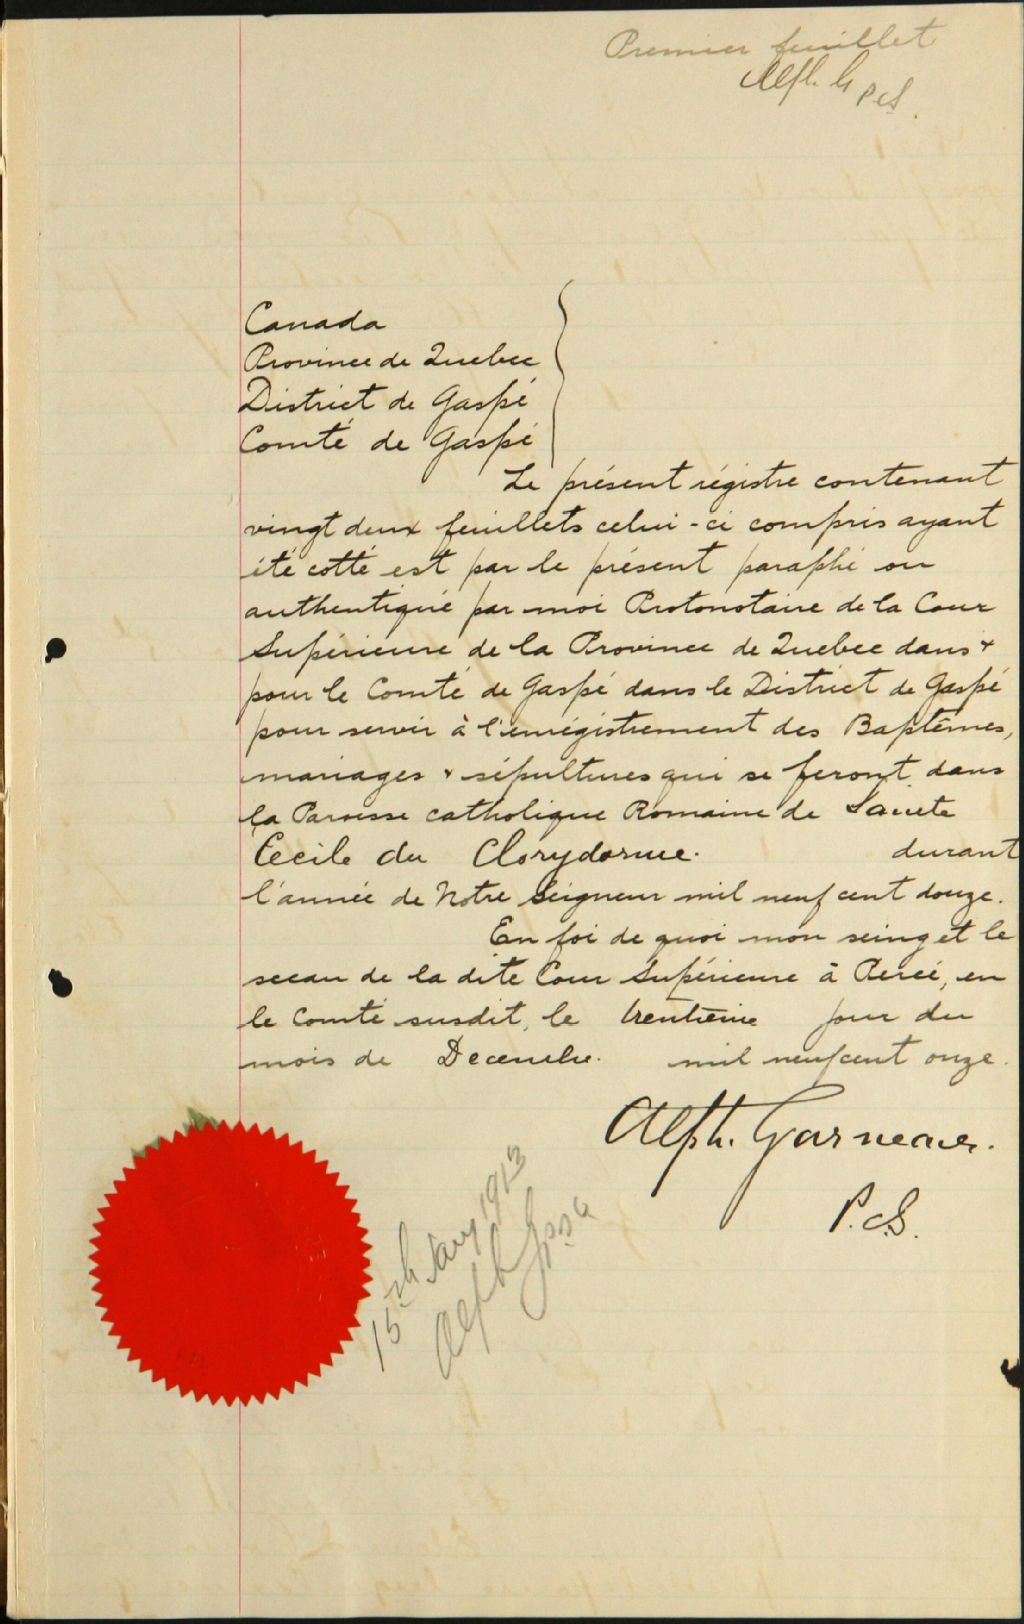 Premier feuillet
Alph. G P.S.
Canada
Province de Quebec
District de Gaspé
Comté de Gaspé
Le présent régistre contenant
vingt deux feuillets celui-ci compris ayant
été cotté est par le présent paraphé ou
authentiqué par moi Protonotaire de la Cour
Supérieure de la Province de Quebec dans &
pour le Comté de Gaspé dans le District de Gaspé
pour servir à l'enrégistrement des Baptêmes,
mariages & sépultures qui se feront dans
la Paroisse catholique Romaine de Sainte
Cecile du Clorydorme. durant
l'année de Notre Seigneur mil neuf cent douze.
En foi de quoi mon seing et le
sceau de la dite Cour Supérieure à Percé, en
le Comté susdit, le trentième jour du
mois de Decembre. mil neuf cent onze.
Alph. Garneau.
P.S.
15th Jany 1913
Alph